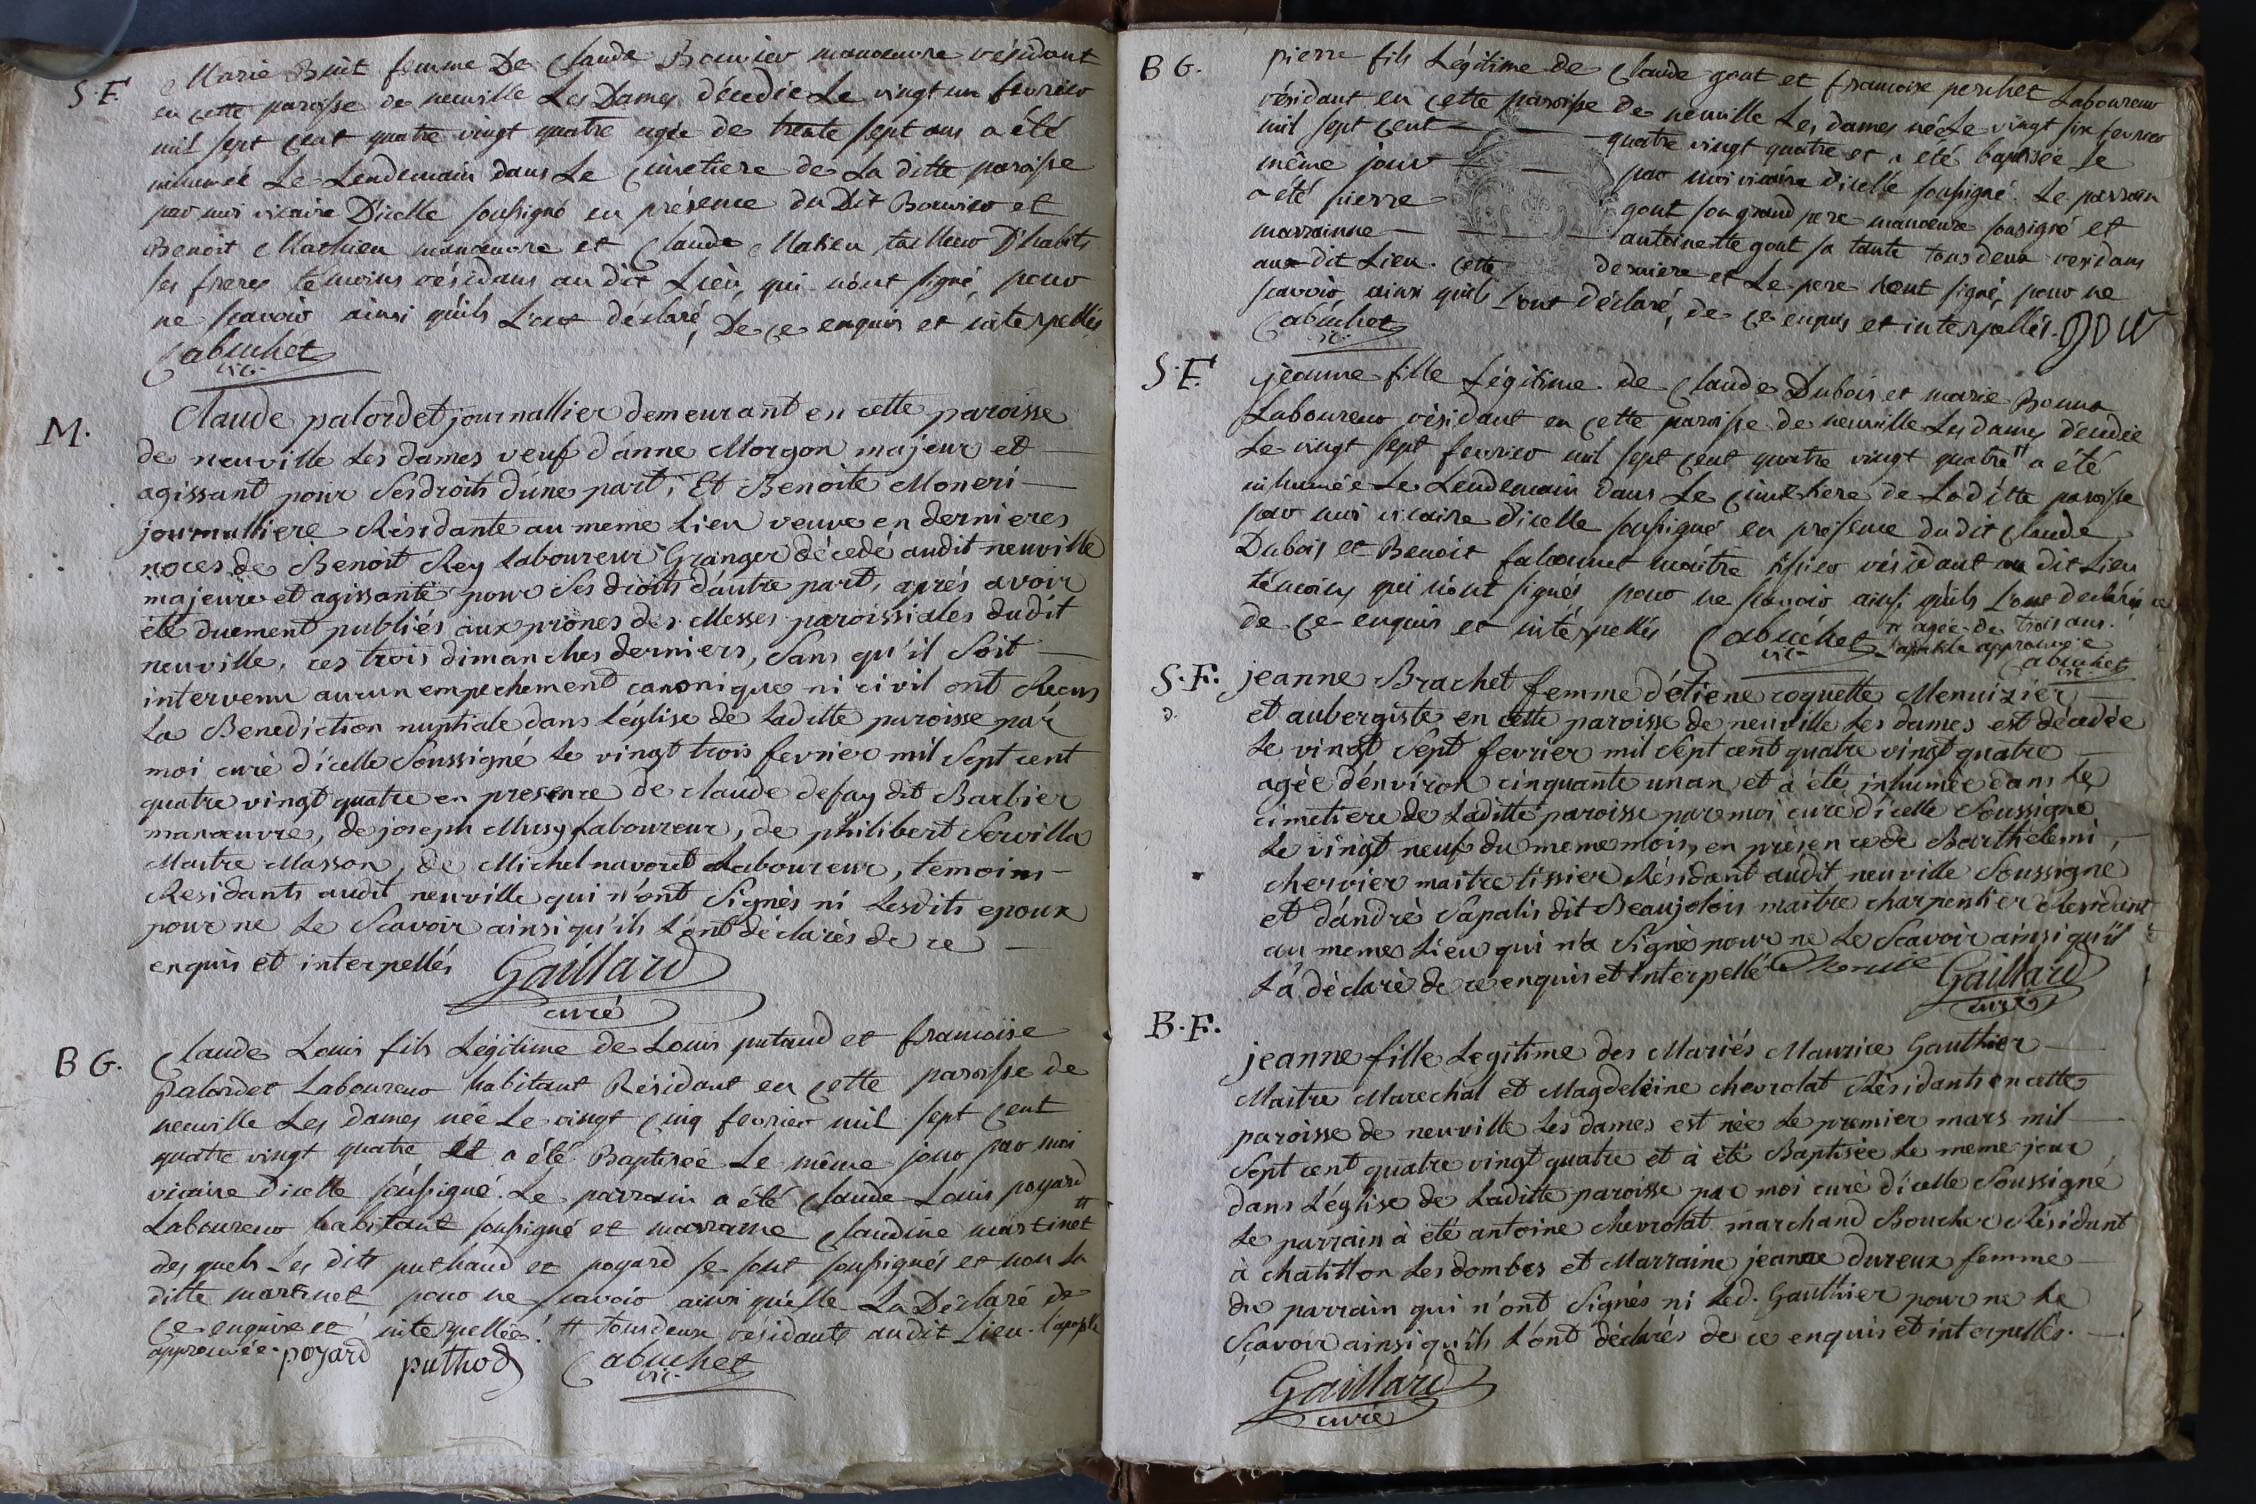 S.F.
Marie Buit femme De Claude Bouvier manoeuvre résidant
en cette paroisse de neuville Les Dames décédée Le vingt un fevrier
mil sept cent quatre vingt quatre agée de trente sept ans a été
inhumée Le Lendemain dans Le Cimetiere de La ditte paroisse
par moi vicaire D'icelle soussigné en présence du Dit Bouvier et
Benoit Mathieu manoeuvre et Claude Matieu tailleur D'habits
ses freres temoins résidans au dit Lieu, qui n'ont signé, pour
ne scavoir ainsi quils L'ont déclaré, De ce enquis et interpellés
Cabuchet
vic.
M.
Claude palordet journallier demeurant en cette paroisse
de neuville Les dames veuf d'anne Morgon majeur et
agissant pour Ses droits d'une part, Et Benoite Moneri
journalliere Résidante au meme Lieu veuve en dernieres
noces de Benoit Rey Laboureur Granger décedé audit neuville
majeure et agissante pour Ses droits d'autre part, aprés avoir
été duement publiés aux prones des Messes paroissiales dudit
neuville, ces trois dimanches derniers, Sans qu'il Soit
intervenu aucun empechement canonique ni civil ont Recus
La Benediction nuptiale dans L'église de Laditte paroisse par
moi curé d'icelle Soussigné Le vingt trois fevrier mil Sept cent
quatre vingt quatre en presence de claude defay dit Barbier
manoeuvre, de joseph Musy Laboureur, de philibert Servilla
Maitre Masson, de Michel navoret Laboureur, temoins
Residants audit neuville qui n'ont Signés ni Lesdits epoux
pour ne Le Scavoir ainsi qu'ils L'ont déclarés de ce
enquis et interpellés Gaillard
curé
B G.
Claude Louis fils Légitime de Louis putaud et francoise
palordet Laboureur habitant Résidant en cette paroisse de
neuville Les dames née Le vingt cinq fevrier mil sept cent
quatre vingt quatre et a été Baptisée Le même jour par moi
vicaire d'icelle soussigné. Le parrain a été Claude Louis poyard
Laboureur habitant soussigné et marraine Claudine martinet #
des quels Les dits puthaud et poyard se sont soussignés et non la
ditte martinet pour ne scavoir ainsi qu'elle La Déclaré de
ce enquise et interpellée. # tous deux résidants au dit Lieu. l'apostle
approuvée. poyard puthod Cabuchet
vic.
B G.
pierre fils Légitime de Claude gout et francoise perchet Laboureur
résidant en cette paroisse de neuville Les dames née Le vingt six fevrier
mil sept cent quatre vingt quatre et a été baptisée Le
même jour par moi vicaire d'icelle soussigné. Le parrain
a été pierre gout son grand pere manoeuvre sousigné et
marrainne antoinette gout sa tante tous deux residans
au dit Lieu. cette derniere et Le pere n'ont signé, pour ne
scavoir, ainsi quils L'ont déclaré, de ce enquis et interpellés. gout
Cabuchet
vic.
S.F.
jeanne fille Légitime de Claude Dubois et marie
Laboureur résidant en cette paroisse de neuville Les dames décédée
Le vingt sept fevrier mil sept cent quatre vingt quatre # a été
inhumée Le Lendemain dans Le Cimethiere de Laditte paroisse
par moi vicaire d'icelle soussigné en présence dudit Claude
Dubois et Benoit maître tissier résidant au dit Lieu
témoins qui n'ont signés pour ne scavoir ainsi quils L'ont declarés
de ce enquis et intérpellés Cabuchet # agée de trois ans.
vic. L'apostille approuvée
Cabuchet
vic.
S.F.
D.
jeanne Brachet femme d'étiene coquette Menuizier
et aubergiste en cette paroisse de neuville Les dames est décedée
Le vingt Sept fevrier mil Sept cent quatre vingt quatre
agée d'environ cinquante un an, et à été inhumée dans Le
cimetiere de Laditte paroisse par moi curé d'icelle Soussigné
Le vingt neuf du meme mois, en présence de Barthélemi
chervier maitre tissier Résidant audit neuville Soussigné
et d'andré Sapalis dit Beaujolois maitre charpentier Residant
au meme Lieu qui n'a Signé pour ne Le Scavoir ainsi qu'il
L'a déclaré de ce enquis et interpellé Gaillard
curé
B.F.
jeanne fille Legitime des Mariés Maurice Gauthier
Maitre Marechal et Magdeleine chevrolat Résidants en cette
paroisse de neuville Les dames est née Le premier mars mil
Sept cent quatre vingt quatre et à été Baptisée Le meme jour
dans L'église de Laditte paroisse par moi curé d'icelle Soussigné
Le parrain à été antoine chevrolat marchand Boucher Résidant
à chatillon Les dombes et Marraine jeanne dureux femme
du parrain qui n'ont Signés ni Led. Gauthier pour ne Le
Scavoir ainsi qu'ils L'ont déclarés de ce enquis et interpellés.
Gaillard
curé